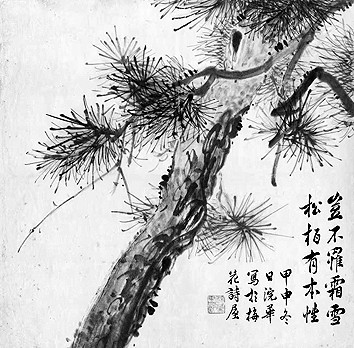 豈不罹霜雪
松柏有本性
甲申冬
日浣華
寫於梅
花詩屋